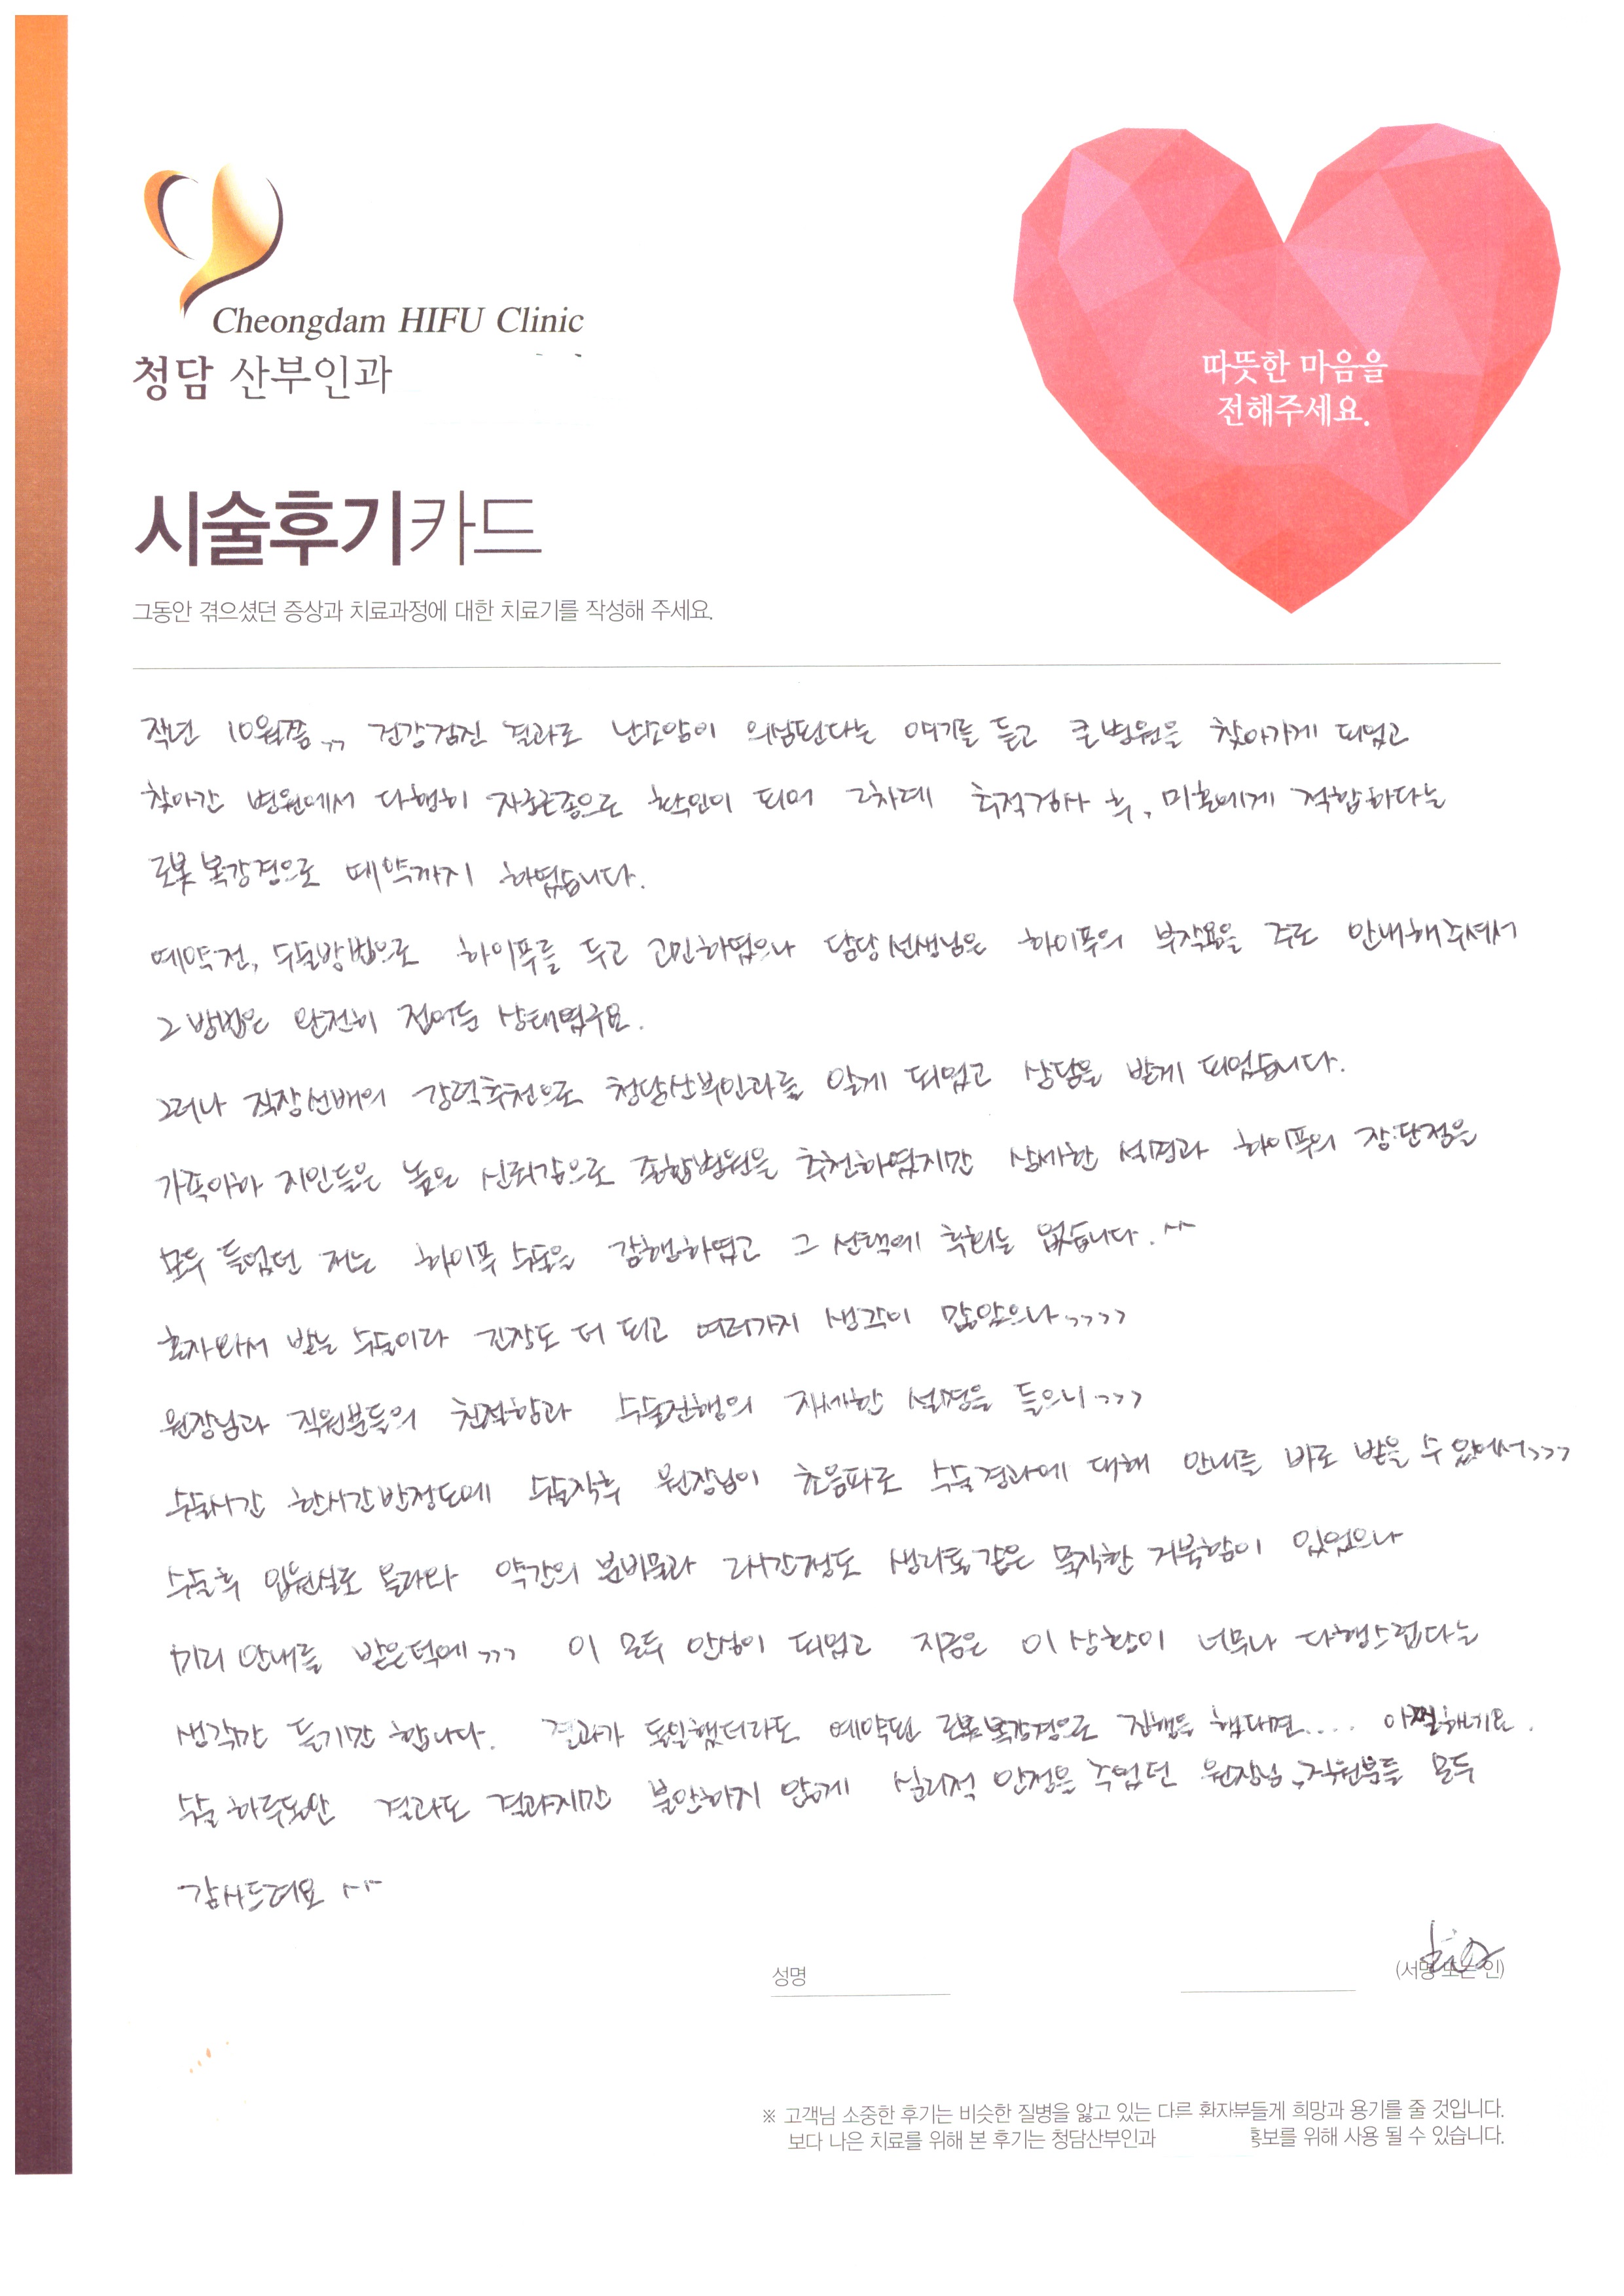 Cheongdam HIFU Clinic
청담 산부인과
따뜻한 마음을
전해주세요.
시술후기카드
그동안 겪으셨던 증상과 치료과정에 대한 치료기를 작성해 주세요.
작년 10월쯤,, 건강검진 결과로 난소암이 의심된다는 얘기를 듣고 큰병원을 찾아가게 되었고
찾아간 병원에서 다행히 자궁근종으로 확인이 되어 2차례 추적검사 후, 미혼에게 적합하다는
로봇복강경으로 예약까지 하였습니다.
예약전, 수술방법으로 하이푸를 두고 고민하였으나 담당선생님은 하이푸의 부작용을 주로 안내해주셔서
그 방법은 완전히 접어둔 상태였구요.
그러나 직장선배의 강력추천으로 청담산부인과를 알게 되었고 상담을 받게 되었습니다.
가족아하 지인들은 높은 신뢰감으로 종합병원을 추천하였지만 상세한 설명과 하이푸의 장·단점을
모두 들었던 저는 하이푸 수술을 감행하였고 그 선택에 후회는 없습니다. ^^
혼자와서 받는 수술이라 긴장도 더 되고 여러가지 생각이 많았으나,,,,
원장님과 직원분들의 친절함과 수술진행의 자세한 설명을 들으니,,,
수술시간 한시간반정도에 수술직후 원장님이 초음파로 수술결과에 대해 안내를 바로 받을 수 있어서,,,
수술후 입원실로 올라와 약간의 분비물과 2시간정도 생리통같은 묵직한 거북함이 있었으나
미리 안내를 받은덕에,,, 이 모두 안심이 되었고 지금은 이 상황이 너무나 다행스럽다는
생각만 들기만 합니다. 결과가 동일했더라도 예약된 로봇복강경으로 진행을 했다면.... 아찔하네요.
수술 하루동안 결과도 결과지만 불안하지 않게 심리적 안정을 주었던 원장님, 직원분들 모두
감사드려요 ^^
성명
(서명 또는 인)
※ 고객님 소중한 후기는 비슷한 질병을 앓고 있는 다른 환자분들게 희망과 용기를 줄 것입니다.
보다 나은 치료를 위해 본 후기는 청담산부인과 홍보를 위해 사용 될 수 있습니다.